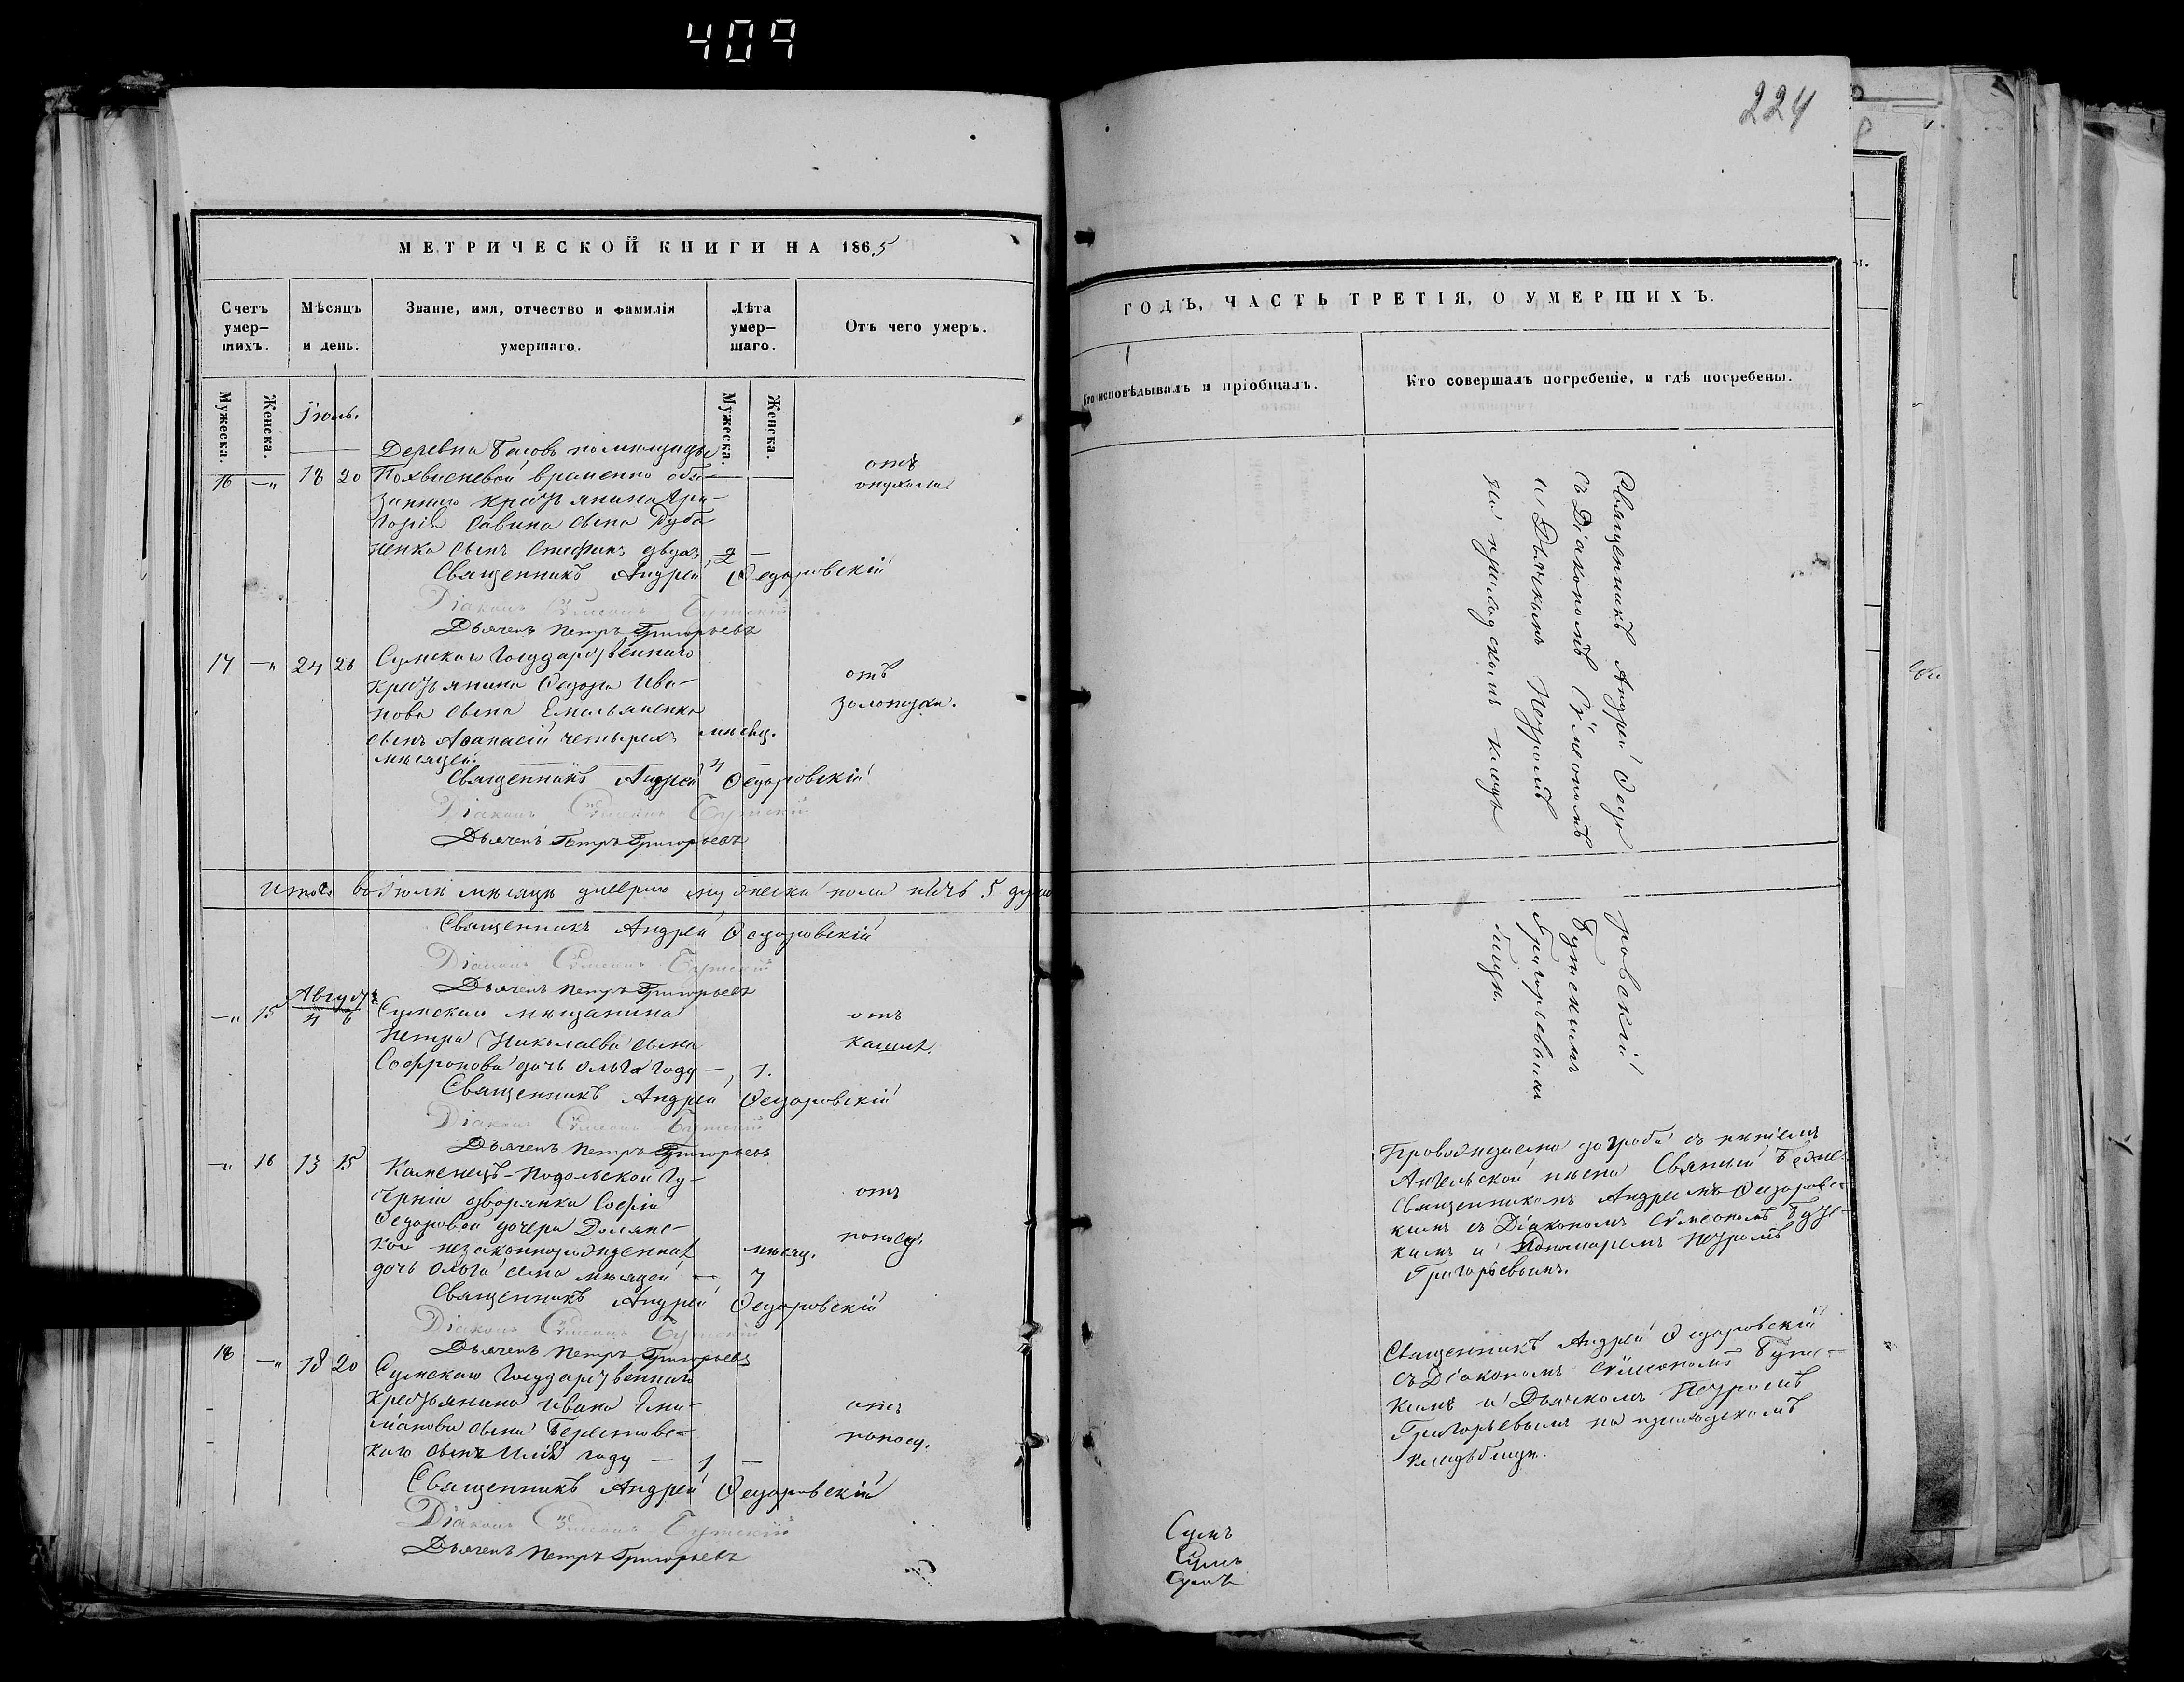 409
224
МЕТРИЧЕСКОЙ КНИГИ НА 1865
Счетъ умер-шихъ.
Мѣсяцъ и день.
Званіе, имя, отчество и фамилія умершаго.
Лѣта умер-шаго.
Отъ чего умеръ.
Мужеска.
Женска.
Іюль.
Мужеска.
Женска.
Деревна помѣщицы
16 —„ 18 20 временно обя-
заннаго крестьянина Гри-
горія Савина сына Дуба
ненка сынъ Стефанъ двухъ 2 —
отъ
опухоли.
Священникъ Андрей Ѳедоровскій
Діаконъ Сѵмеонъ
Дьячекъ Петръ Григорьевъ
17 —„ 24 26 Сумскаго Государственнаго
крестьянина Ѳедора Ива-
нова сына Емельяненка
сынъ Аѳанасій четырехъ мѣсяц.
мѣсяцей. 4
отъ
золотухи.
Священникъ Андрей Ѳедоровскій
Діаконъ Сѵмеонъ
Дьячекъ Петръ Григорьевъ
Итого въ Іюлѣ мѣсяцѣ умерло мужеска пола пять 5 душъ
Священникъ Андрей Ѳедоровскій
Діаконъ Сѵмеонъ
Дьячекъ Петръ Григорьевъ
Августъ
—„ 15 4 6 Сумскаго мѣщанина
Петра Николаева сына
Софронова дочь Ольга году — 1.
отъ
кашля.
Священникъ Андрей Ѳедоровскій
Діаконъ Сѵмеонъ
Дьячекъ Петръ Григорьевъ
—„ 16 13 15 Каменецъ-Подольской Гу-
берніи дворянки Софіи
Ѳедоровой дочери
кой незаконнорожденная мѣсяц.
дочь Ольга семи мѣсяцей — 7
отъ
поносу.
Священникъ Андрей Ѳедоровскій
Діаконъ Сѵмеонъ
Дьячекъ Петръ Григорьевъ
18 —„ 18 20 Сумскаго Государственнаго
крестьянина Ивана
сына Берестовс-
каго сынъ Илія году — 1 —
отъ
поносу.
Священникъ Андрей Ѳедоровскій
Діаконъ Сѵмеонъ
Дьячекъ Петръ Григорьевъ
ГОДЪ, ЧАСТЬ ТРЕТІЯ, О УМЕРШИХЪ.
Кто исповѣдывалъ и пріобщалъ.
Кто совершалъ погребеніе, и гдѣ погребены.
Священникъ Андрей Ѳедо
ровскій
съ Діакономъ Сѵмеономъ
и Дьячкомъ Петромъ
Григорьевымъ
на приходскомъ кладъ
бищѣ.
Провождена до гроба съ пѣніемъ
Ангельской пѣсни Святый Боже
Священникомъ Андреемъ Ѳедоровс-
кимъ съ Діакономъ Сѵмеономъ
кимъ и Пономаремъ Петромъ
Григорьевымъ.
Священникъ Андрей Ѳедоровскій
съ Діакономъ Сѵмеономъ
кимъ и Дьячкомъ Петромъ
Григорьевымъ на приходскомъ
кладбищѣ.